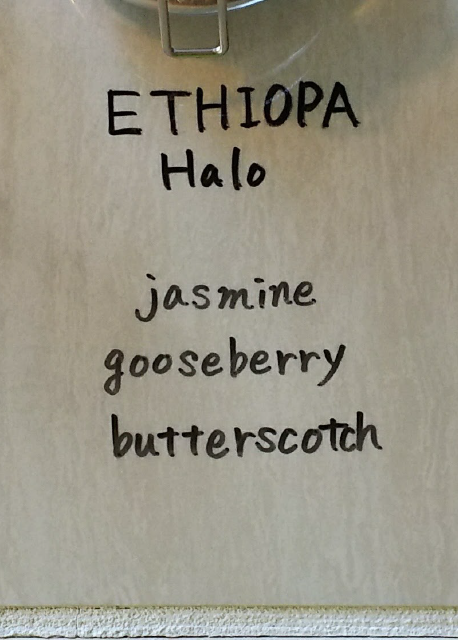 ETHIOPA
Halo
jasmine
gooseberry
butterscotch